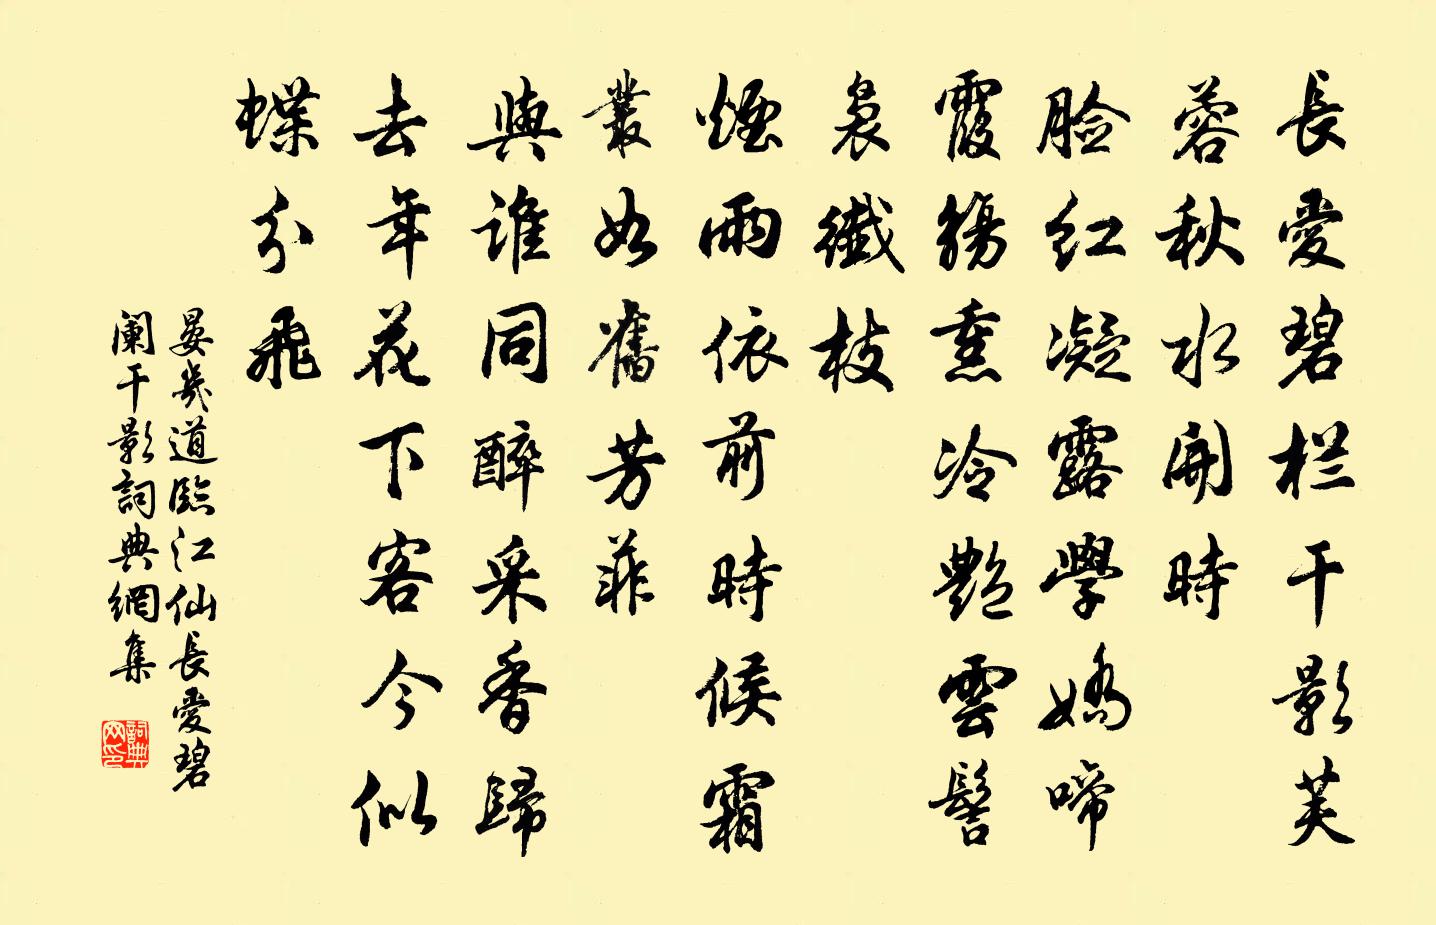 長愛碧栏干影芙
蓉秋水開時
脸红凝露學嬌啼
霞觴熏冷艷雲髻
裊纖枝
煙雨依前時候霜
叢如舊芳菲
與誰同醉采香歸
去年花下客今似
蝶分飛
晏幾道臨江仙長愛碧
闌干影詞典網集
詞典
网印